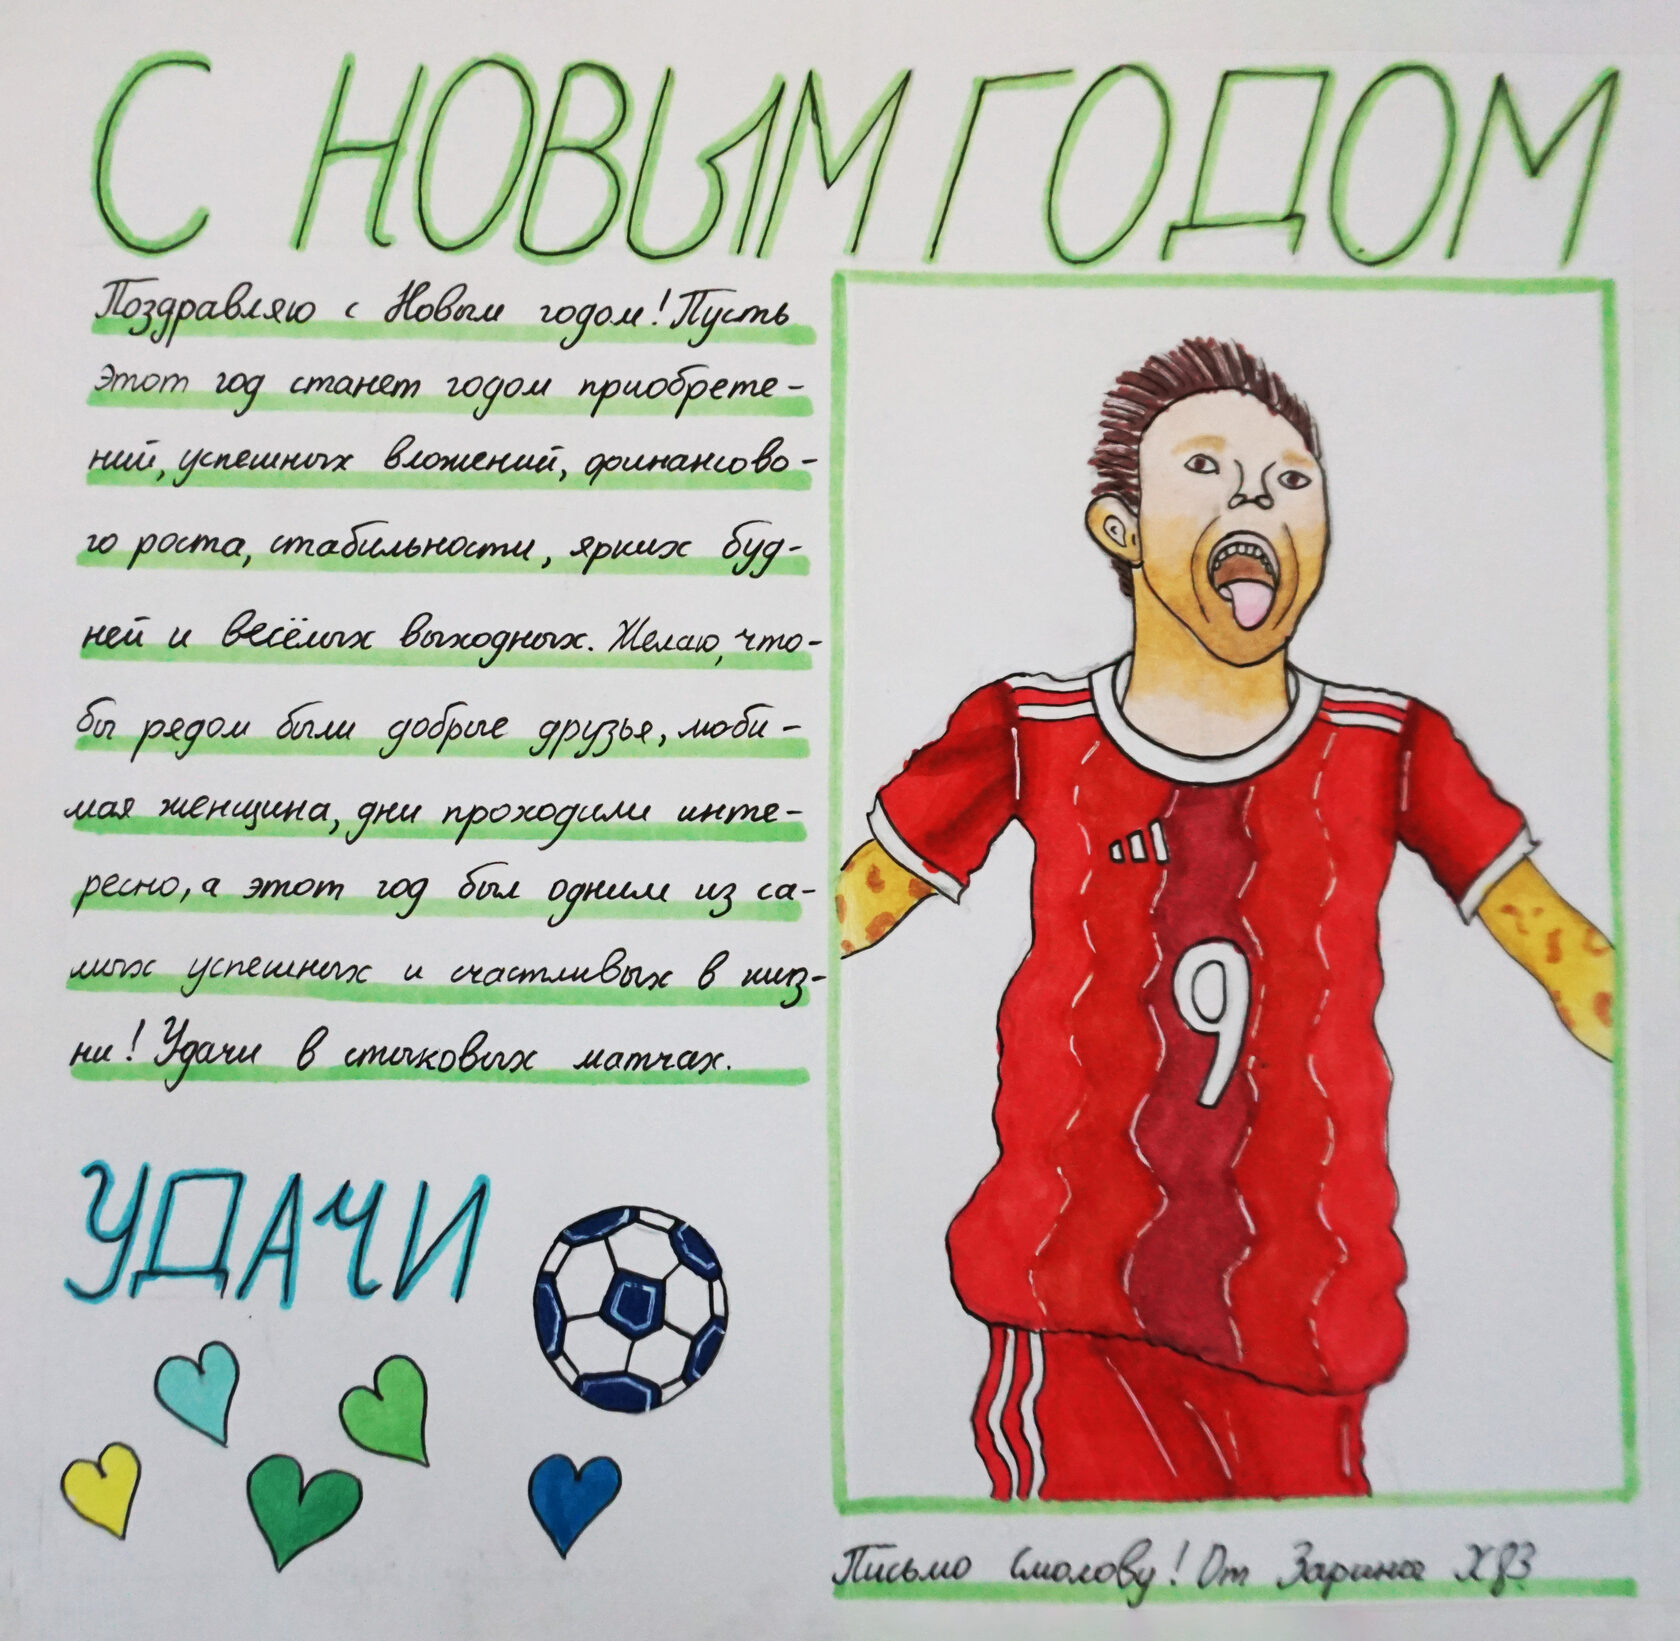 С НОВЫМ ГОДОМ
Поздравляю с Новым годом! Пусть
этот год станет годом приобрете-
ний, успешных вложений, финансово-
го роста, стабильности, ярких буд-
ней и весёлых выходных. Желаю, что-
бы рядом были добрые друзья, люби-
мая женщина, дни проходили инте-
ресно, а этот год был одним из са-
мых успешных и счастливых в жиз-
ни! Удачи в стыковых матчах.
УДАЧИ
9
Письмо Смолову! От Зарины